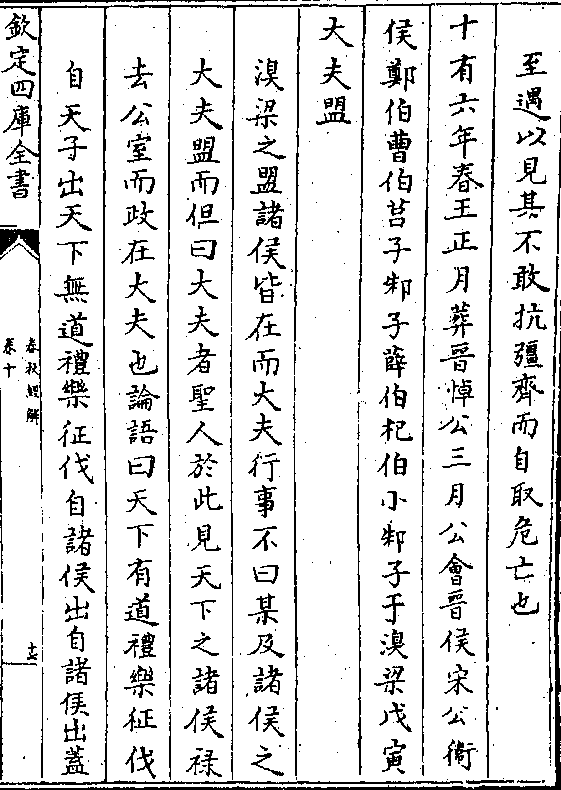 至遇以見其不敢抗彊齊而自取危亡也
十有六年春王正月葬晉悼公三月公會晉侯宋公衛
侯鄭伯曹伯莒子邾子薛伯杞伯小邾子于溴梁戊寅
大夫盟
溴梁之盟諸侯皆在而大夫行事不曰某及諸侯之
大夫盟而但曰大夫者聖人於此見天下之諸侯禄
去公室而政在大夫也論語曰天下有道禮樂征伐
自天子出天下無道禮樂征伐自諸侯出自諸侯出蓋
欽定四庫全書
春秋經解
卷十